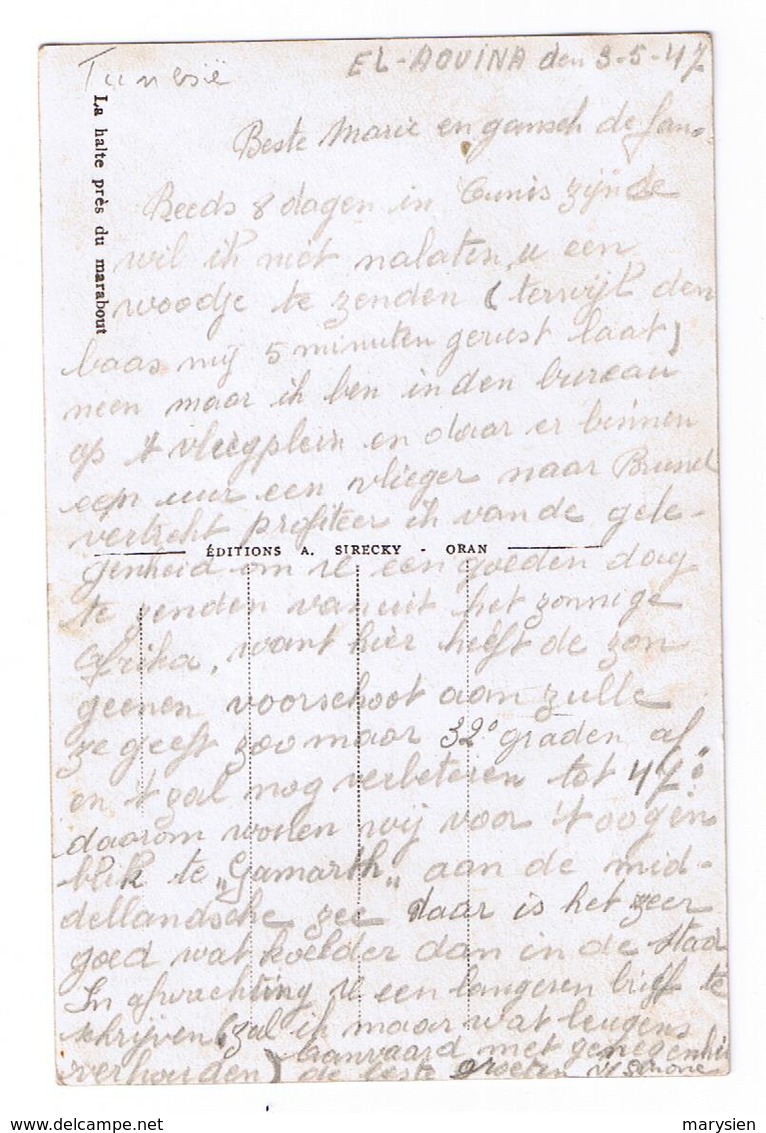 Tunesië
EL-AOUINA den 3-5-47
La halte près du marabout
Beste Marie en gansch de fam.
Reeds 8 dagen in Tunis zijnde
wil ik niet nalaten u een
woodje te zenden (terwijl den
baas mij 5 minuten gerust laat)
neen maar ik ben in den bureau
op 't vliegplein en daar er binnen
een uur een vlieger naar Brussel
vertrekt profiteer ik van de gele-
ÉDITIONS A. SIRECKY - ORAN
genheid om u een goeden dag
te zenden vanuit het zonnige
Afrika, want hier heeft de zon
geenen voorschoot aan zulle
ze geeft zoo maar 32° graden af
en 't zal nog verbeteren tot 47°
daarom wonen wij voor 't oogen
blik te „Gamarth„ aan de mid-
dellandsche zee daar is het zeer
goed wat koelder dan in de stad
In afwachting u een langeren brief te
schrijven (zal ik maar wat leugens
verhouden) aanvaard met genegenheid
de beste groeten
marysien